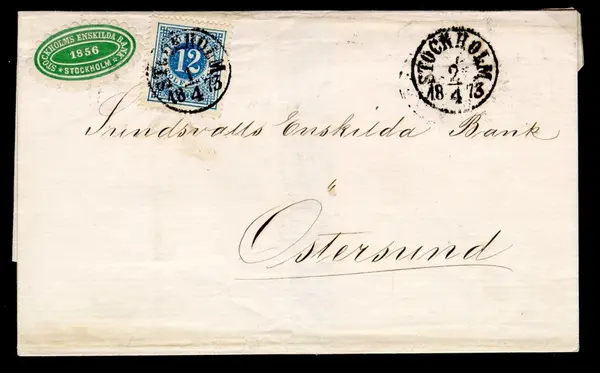 STOCKHOLMS ENSKILDA BANK
1856
STOCKHOLM
STOCKHOLM
12
18 4 73
STOCKHOLM
2
18 4 73
Sundsvalls Enskilda Bank
Östersund